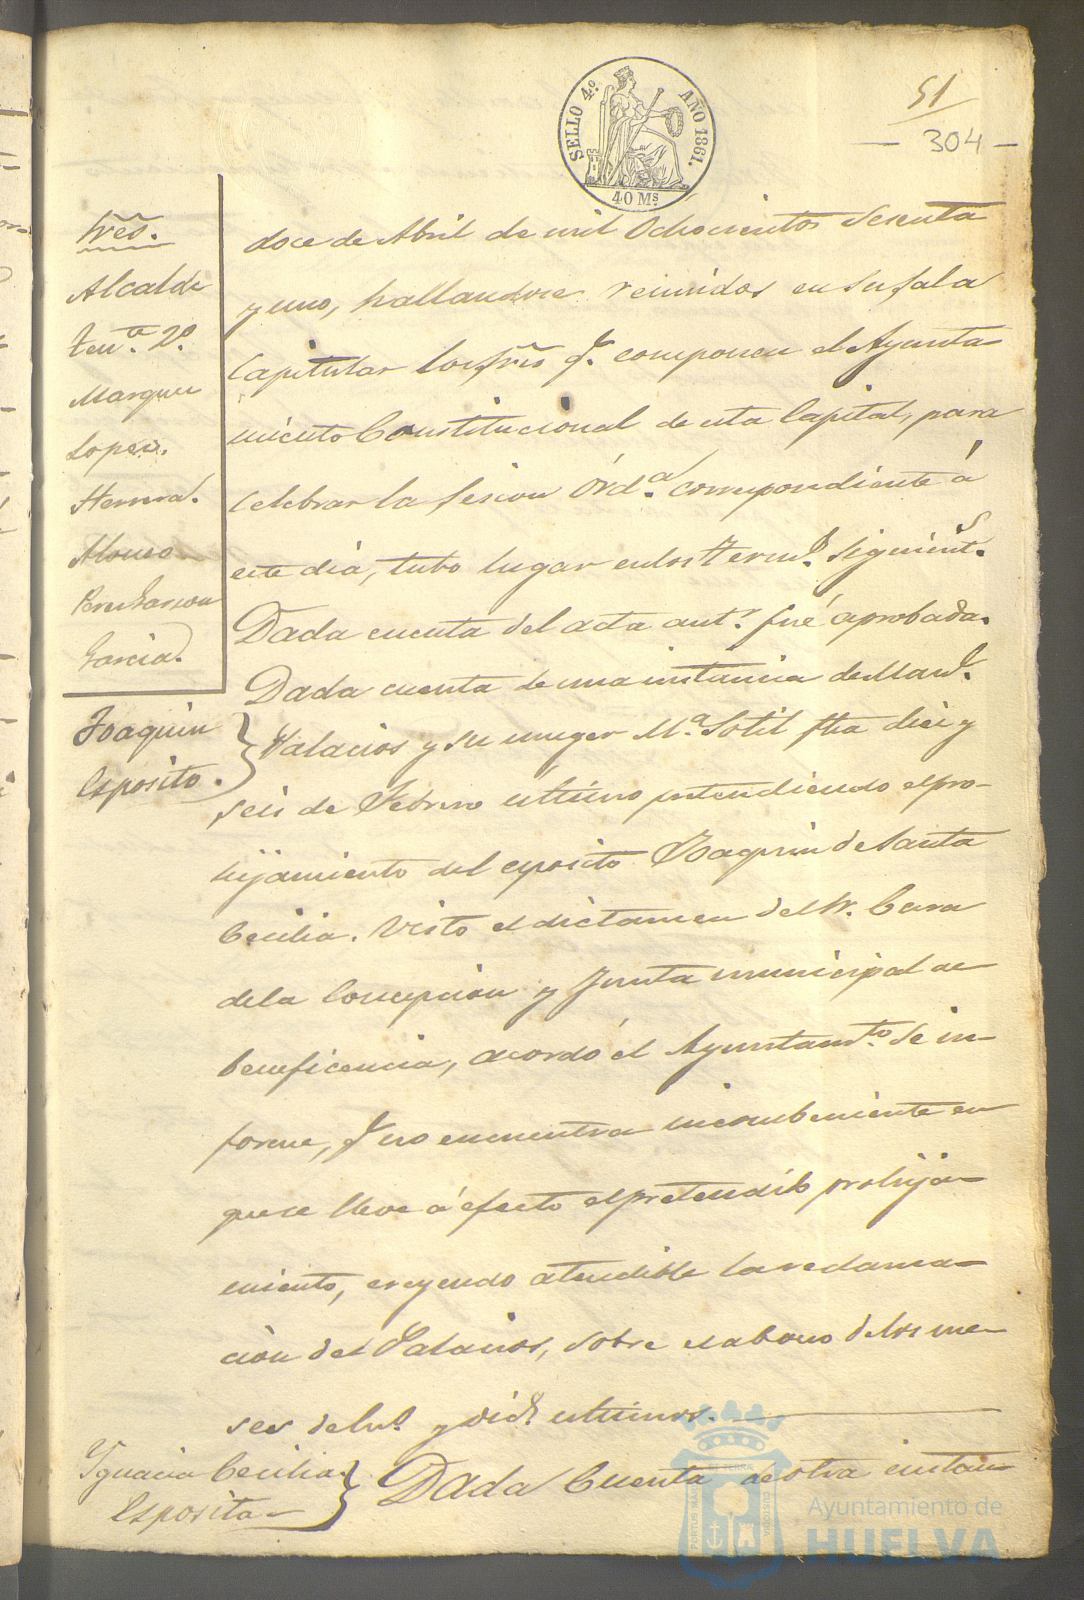 SELLO 4.º AÑO 1861.
40 Ms
51
304
Sres.
Alcalde
Tente. 2.º
Marquez
Lopez.
Herrera.
Alonso
Perez Garzon
Garcia.
doce de Abril de mil Ochocientos Sesenta
y uno, hallandose reunidos en su sala
Capitular los Sres q.e componen el Ayunta-
miento Constitucional de esta Capital, para
celebrar la sesion Órd.a correspondiente á
este dia, tubo lugar en los term.s siguient.s
Dada cuenta del acta ant.r fué aprobada.
Joaquin
Esposito.
Dada cuenta de una instancia de Man.l
Palacios y su muger M.a Sotil fha diez y
seis de Febrero ultimo pretendiendo el pro-
hijamiento del esposito Joaquin de Santa
Cecilia. Visto el dictamen del Sr. Cura
de la Concepcion y Junta municipal de
beneficencia, acordó el Ayuntam.to se in-
forme, q.e no encuentra incombeniente en
que se lleve á efecto el pretendido prohija-
miento, creyendo atendible la reclama-
cion del Palacios, sobre el abono de los me-
ses de En.o y Dic.e ultimos.
Ygnacia Cecilia
Esposita
Dada Cuenta de otra instan-
Ayuntamiento de
HUELVA